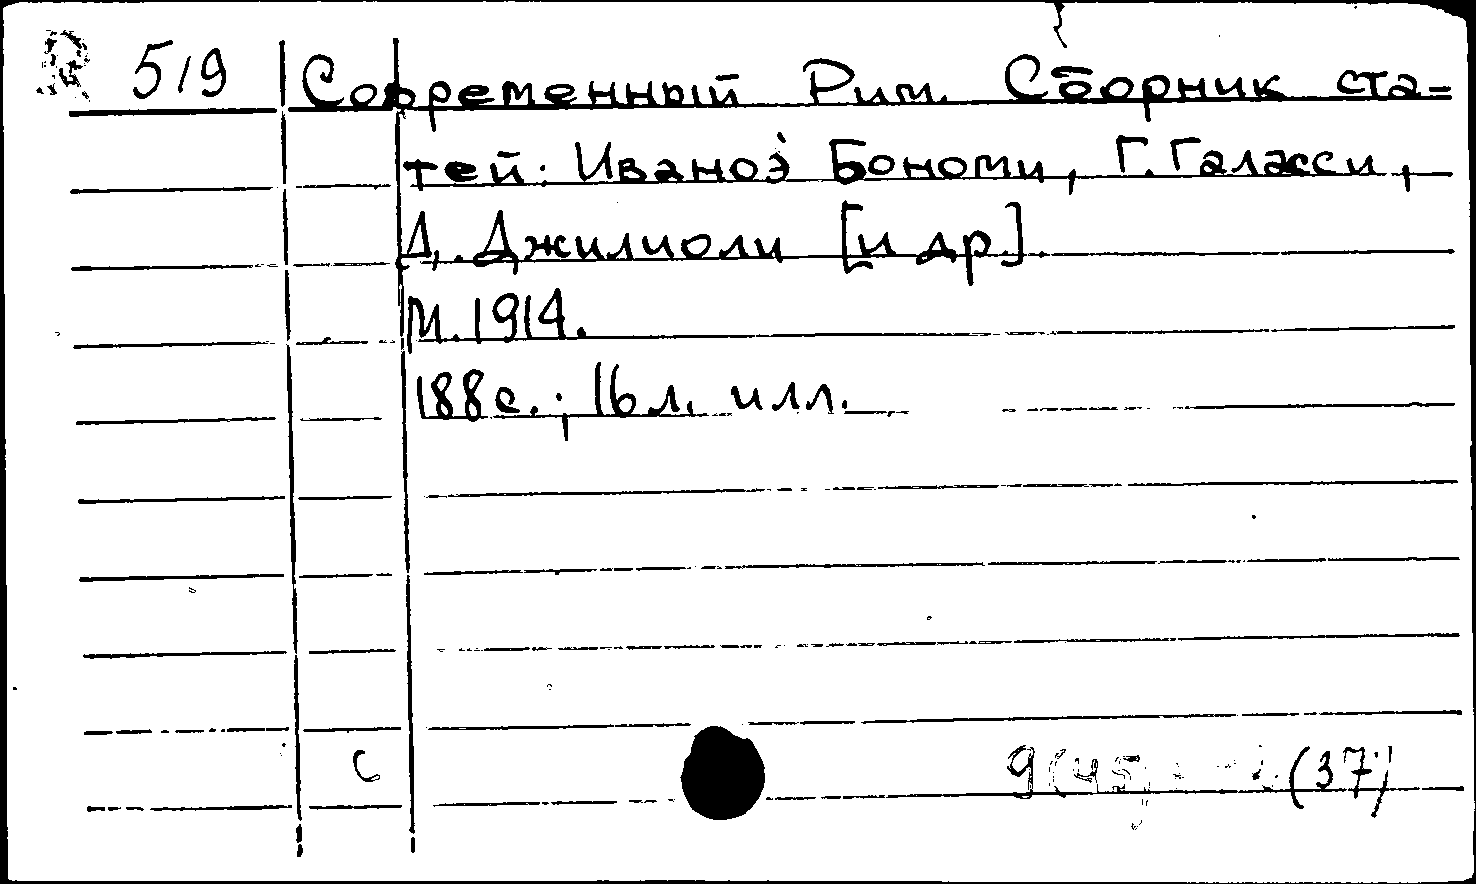 R 519 Современный Рим. Сборник ста-
тей: Иваноэ Бономи, Г. Галасси,
Д. Джилиоли [и др].
М. 1914.
188 с.; 16 л. илл.
С 9(45) (37)